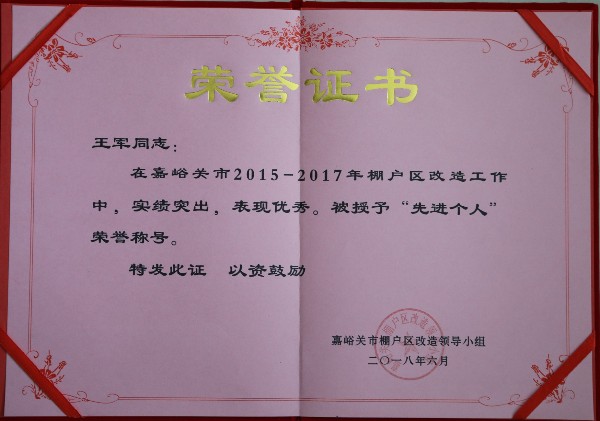 荣誉证书
王军同志：
在嘉峪关市2015-2017年棚户区改造工作
中，实绩突出，表现优秀。被授予“先进个人”
荣誉称号。
特发此证 以资鼓励
嘉峪关市棚户区改造领导小组
二〇一八年六月